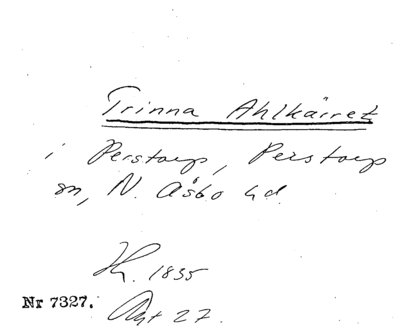 Trinna Ahlkärret
i Perstorp, Perstorp
sn, N. Åsbo hd.
H. 1835
Nr 7327.
Akt 27.